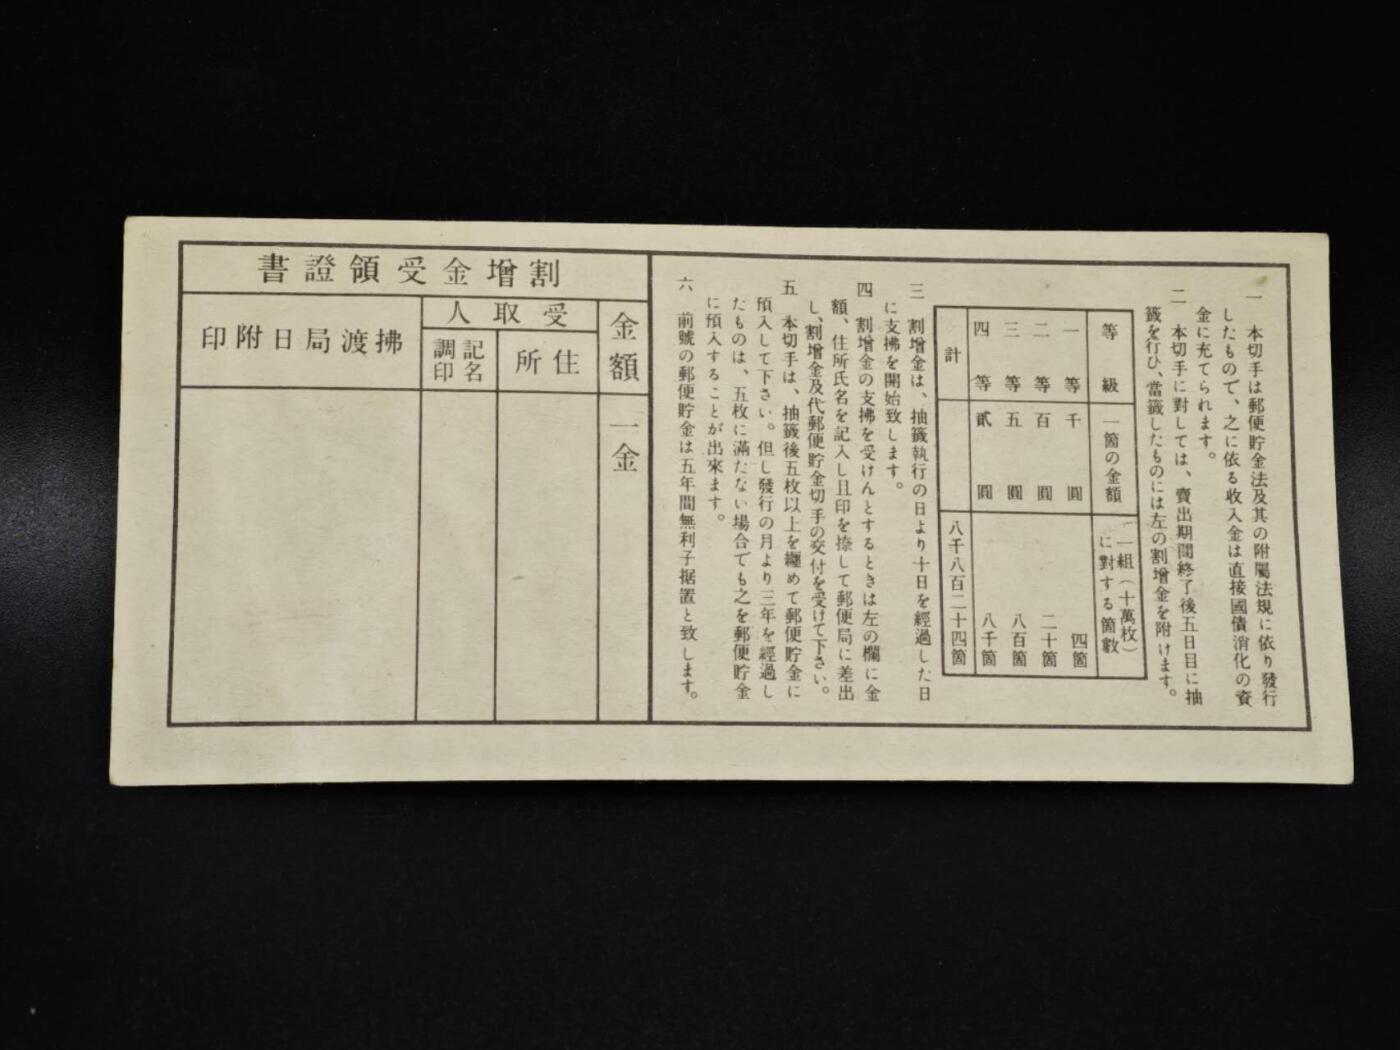 一 本切手は郵便貯金法及其の附屬法規に依り發行
したもので、之に依る收入金は直接國債消化の資
金に充てられます。
二 本切手に對しては、賣出期間終了後五日目に抽
籤を行ひ、當籤したものには左の割增金を附けます。
等級 一箇の金額 一組(十萬枚)に對する箇數
一等 千圓 四箇
二等 百圓 二十箇
三等 五圓 八百箇
四等 貳圓 八千箇
計 八千八百二十四箇
三 割增金は、抽籤執行の日より十日を經過した日
に支拂を開始致します。
四 割增金の支拂を受けんとするときは左の欄に金
額、住所氏名を記入し且印を捺して郵便局に差出
し、割增金及代郵便貯金切手の交付を受けて下さい。
五 本切手は、抽籤後五枚以上を纏めて郵便貯金に
預入して下さい。但し發行の月より三年を經過し
たものは、五枚に滿たない場合でも之を郵便貯金
に預入することが出來ます。
六 前號の郵便貯金は五年間無利子据置と致します。
割增金受領證書
金額
一金
受取人
住所
記名
調印
拂渡局日附印